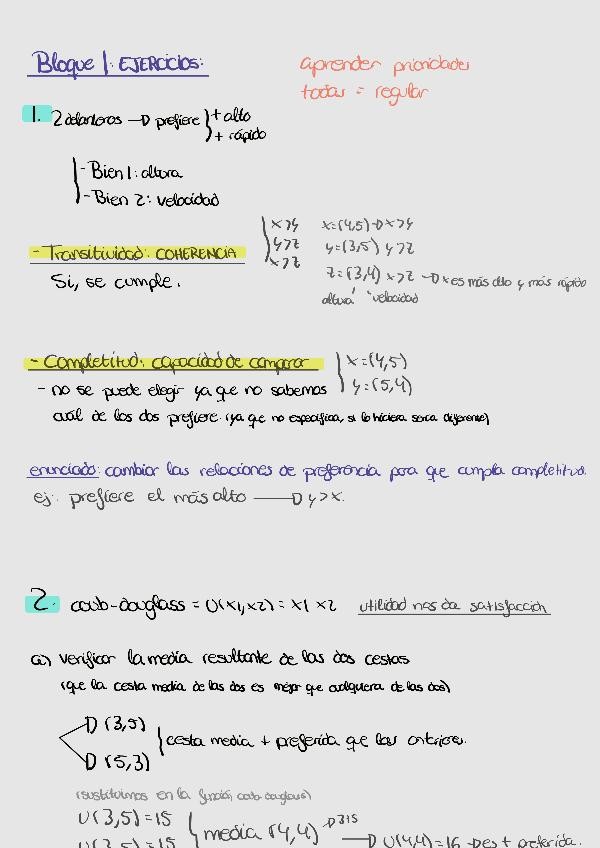 Bloque 1: EJERCICIOS:
aprender prioridades
todas = regular
1. 2 delanteros → prefiere + alto
+ rápido
- Bien 1: altura
- Bien 2: velocidad
- Transitividad: COHERENCIA
Si, se cumple.
x>y x=(4,5) → x>y
y>z y=(3,5) y>z
x>z z=(3,4) x>z → x es más alto y más rápido
altura velocidad
- Completitud: capacidad de comparar
x=(4,5)
y=(5,4)
- no se puede elegir ya que no sabemos
cual de los dos prefiere (ya que no especifica, si lo hiciera seria diferente)
enunciado: cambiar las relaciones de preferencia para que cumpla completitud.
ej: prefiere el más alto → y>x.
2. coub-douglass = U(x1,x2) = x1 x2 utilidad nos da satisfacción
a) verificar la media resultante de las dos cestas
(que la cesta media de las dos es mejor que cualquiera de las dos)
→ (3,5)
→ (5,3)
cesta media + preferida que las anteriores.
(sustituimos en la función coub-douglass)
U(3,5)=15
U(3,5)=15
media (4,4) → U(4,4)=16 → es + preferida.